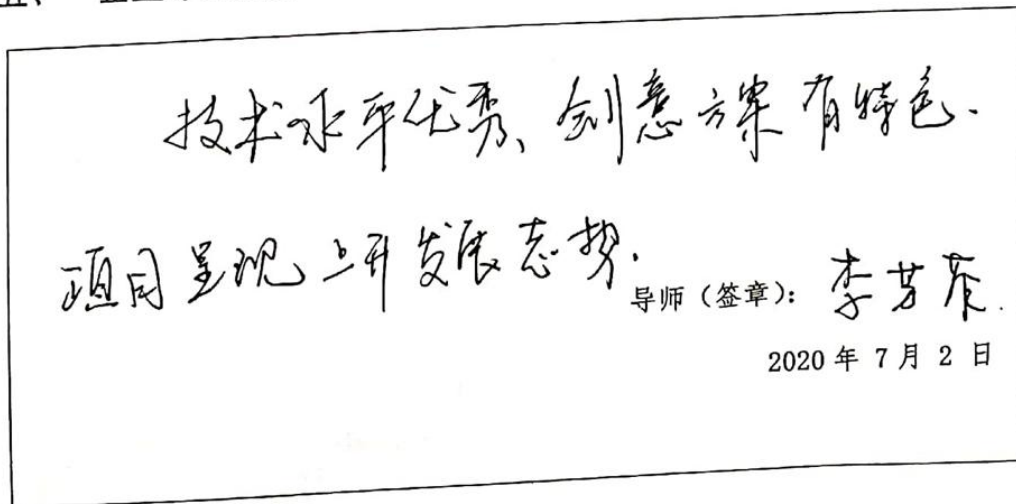 五、
技术水平优秀、创意方案有特色.
项目呈现上升发展态势.
导师（签章）：李芳
2020 年 7 月 2 日